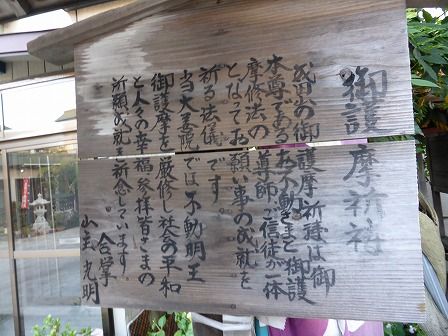 御護摩祈祷
成田山の御護摩祈祷は御
本尊であるお不動さまと御護
摩修法の導師、ご信徒が一体
となってお願い事の成就を
祈る法儀です。
当大菩院では不動明王
御護摩を厳修し社会の平和
と人々の幸福参拝皆さまの
祈願成就を祈念しています。
合掌
山主 光明